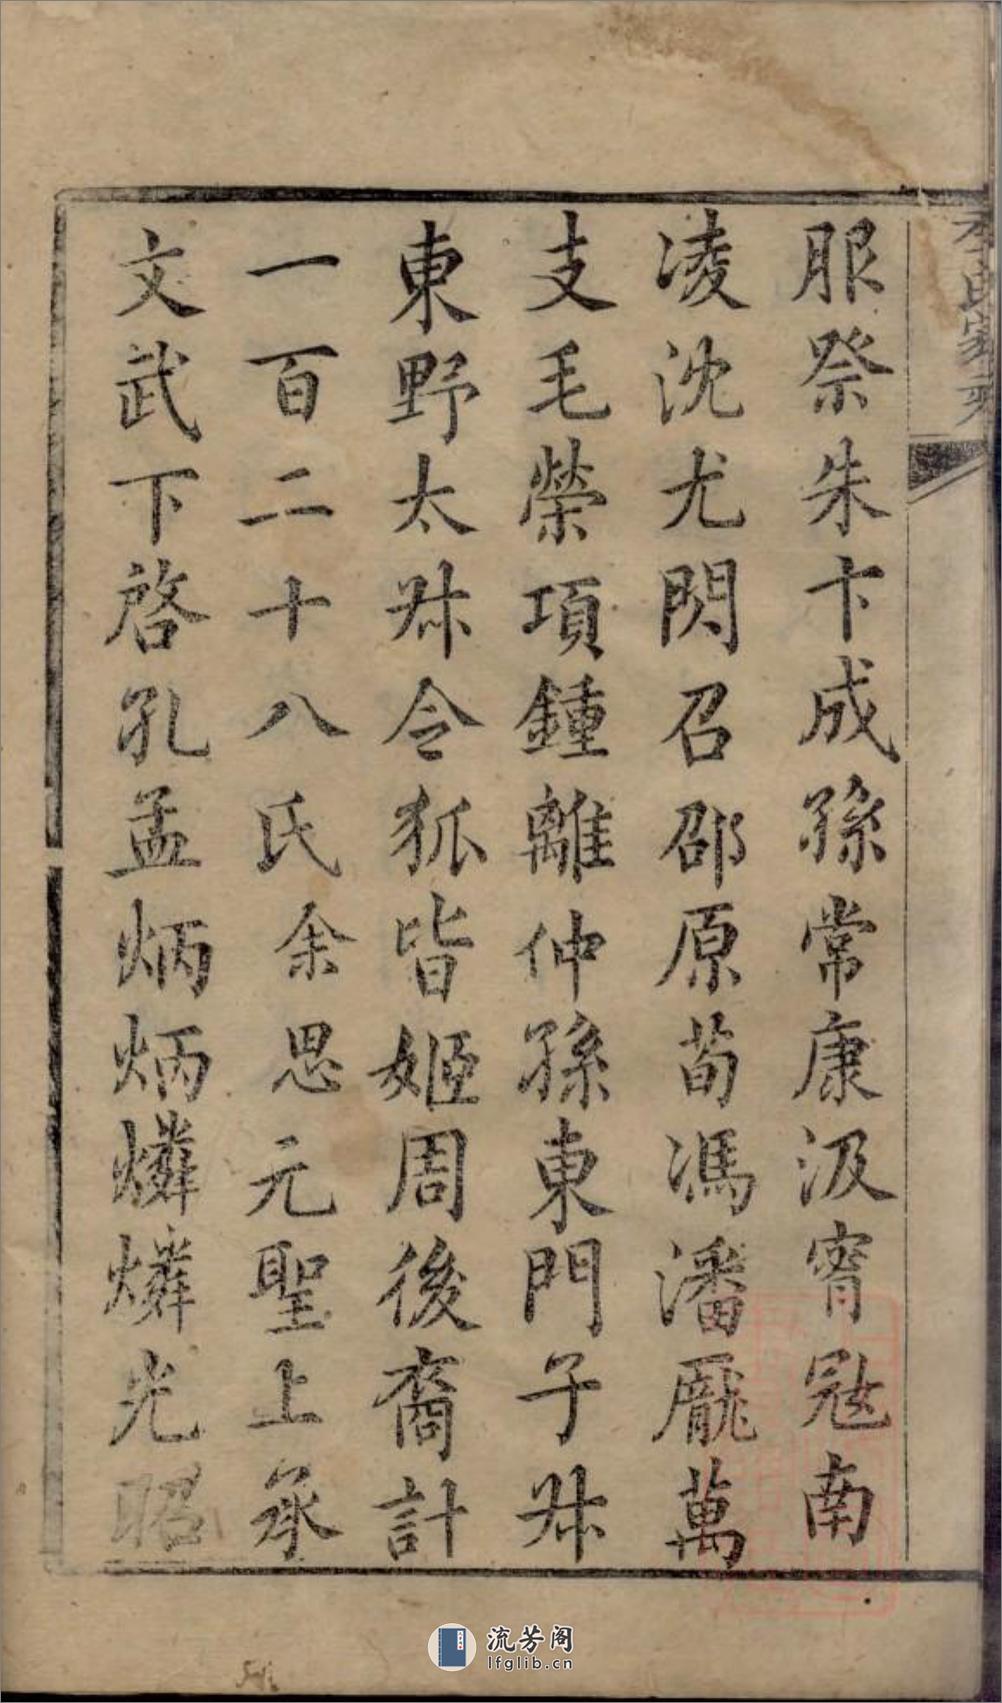 服祭朱卞成孫常康汲甯冦南
凌沈尤閃召邵原荀馮潘龎萬
支毛榮項鍾離仲孫東門子叔
東野太叔令狐皆姬周後裔計
一百二十八氏余思元聖上承
文武下啓孔孟炳炳燐燐光昭
流芳阁
lfglib.cn